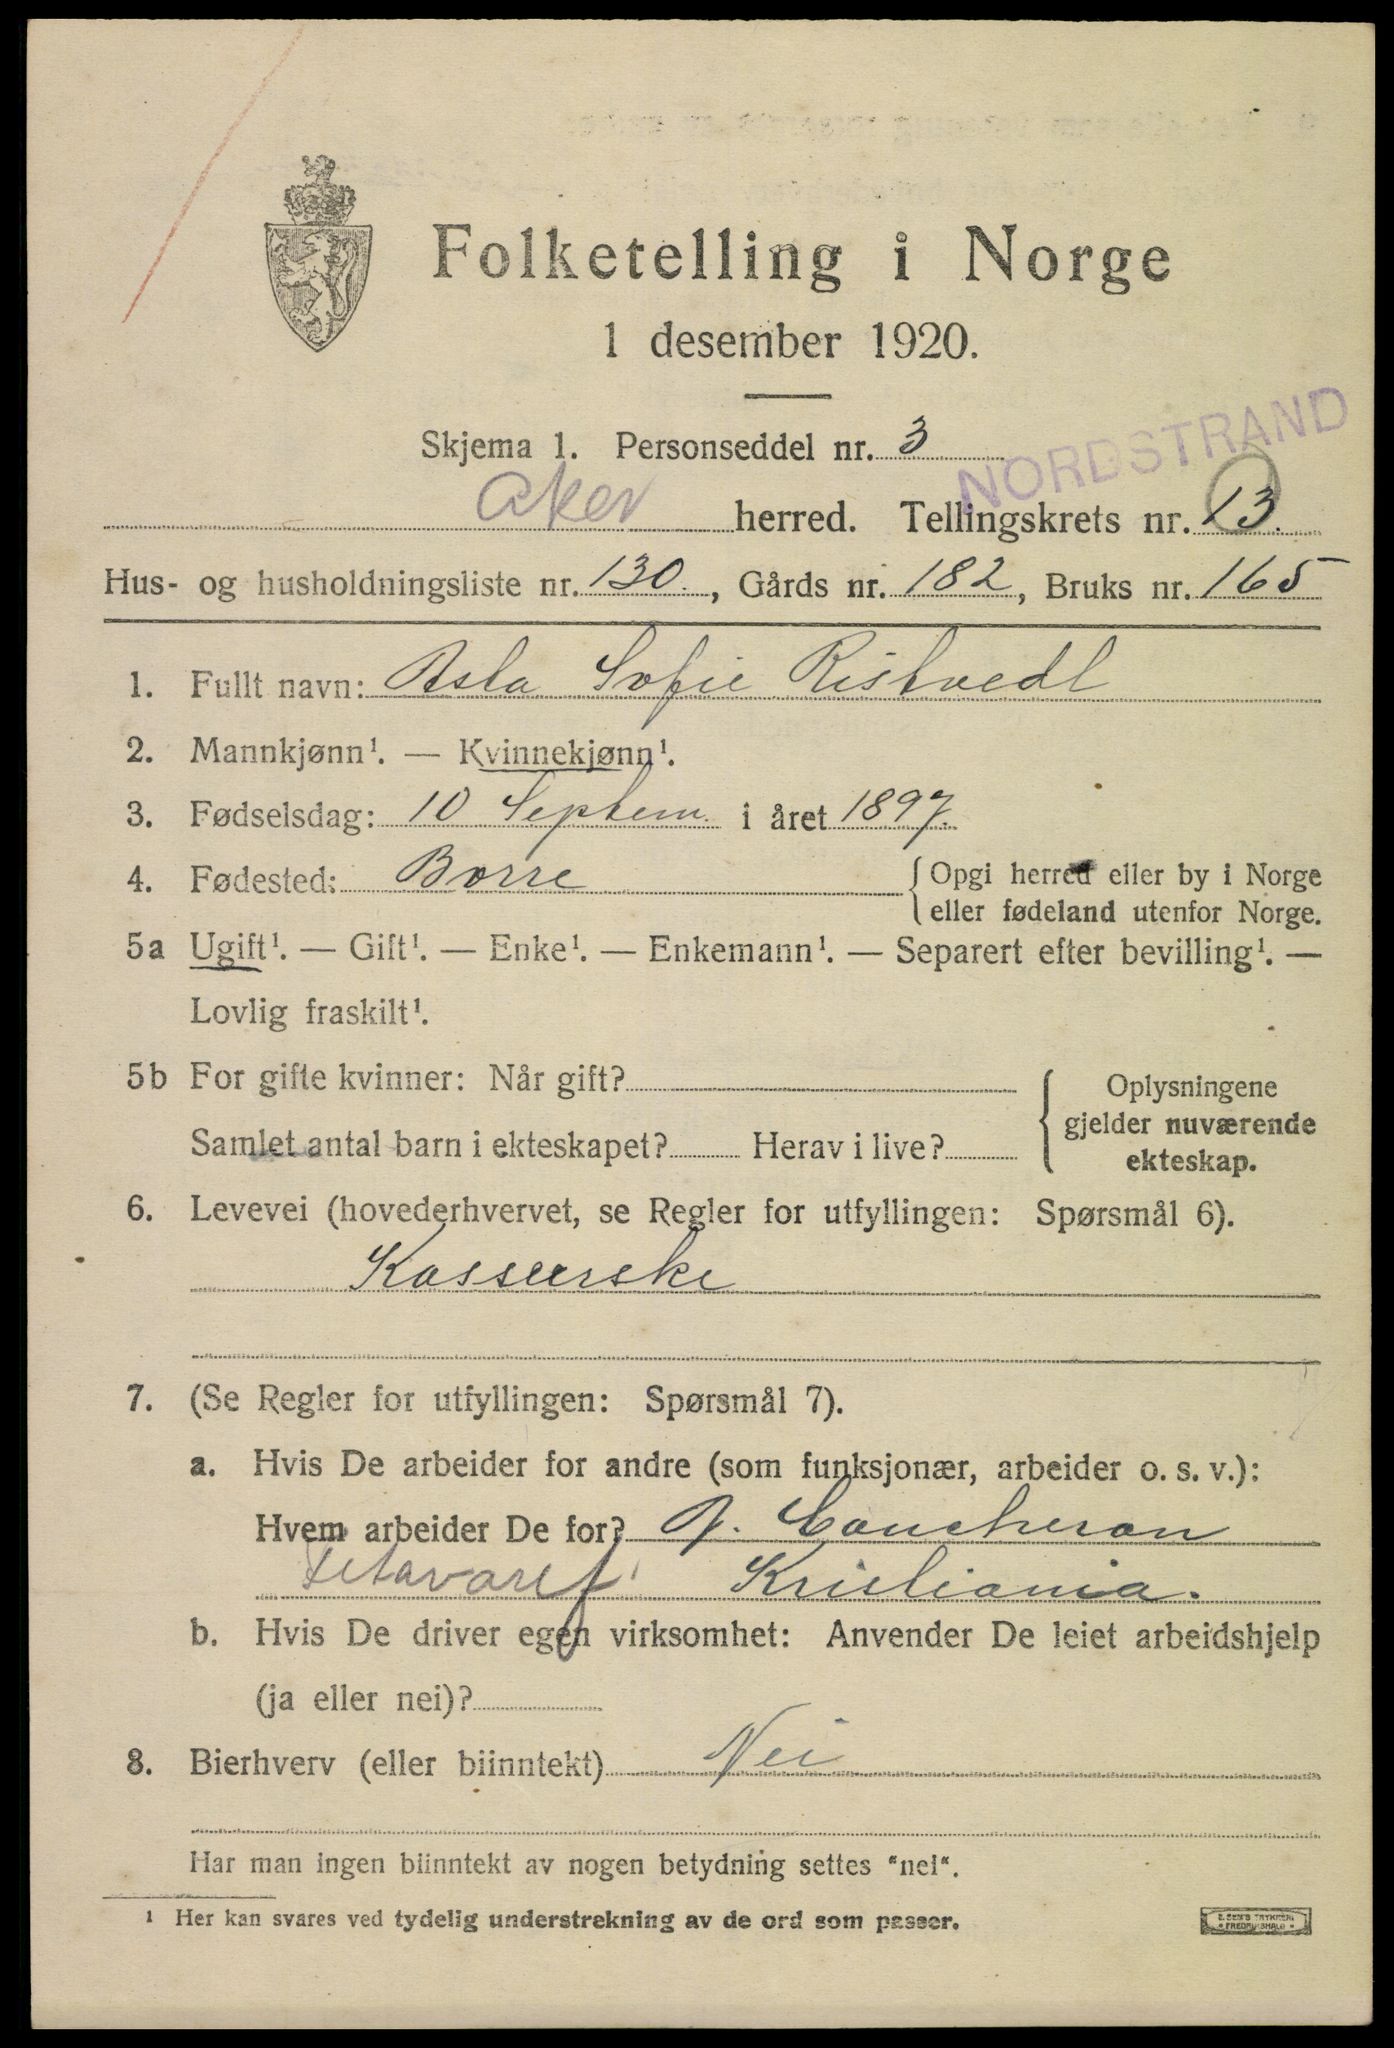 Folketelling i Norge
1 desember 1920.
NORDSTRAND
Skjema 1. Personseddel nr. 3
Aker herred. Tellingskrets nr. 13.
Hus- og husholdningsliste nr. 130., Gårds nr. 182, Bruks nr. 165
1. Fullt navn: Asta Sofie Ristvedt
2. Mannkjønn¹. — Kvinnekjønn¹.
3. Fødselsdag: 10 Septem. i året 1897.
4. Fødested: Borre { Opgi herred eller by i Norge
eller fødeland utenfor Norge.
5a Ugift¹. — Gift¹. — Enke¹. — Enkemann¹. — Separert efter bevilling¹. —
Lovlig fraskilt¹.
5b For gifte kvinner: Når gift?
Samlet antal barn i ekteskapet? Herav i live?
{ Oplysningene
gjelder nuværende
ekteskap.
6. Levevei (hovederhvervet, se Regler for utfyllingen: Spørsmål 6).
Kasserske
7. (Se Regler for utfyllingen: Spørsmål 7).
a. Hvis De arbeider for andre (som funksjonær, arbeider o. s. v.):
Hvem arbeider De for? Coucheron
Kristiania.
b. Hvis De driver egen virksomhet: Anvender De leiet arbeidshjelp
(ja eller nei)?
8. Bierhverv (eller biinntekt) Nei
Har man ingen biinntekt av nogen betydning settes "nei".
¹ Her kan svares ved tydelig understrekning av de ord som passer.
E. SEM'S TRYKKERI
FREDRIKSHALD